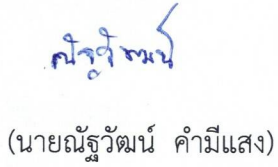 ณัฐวัฒน์
(นายณัฐวัฒน์ คำมีแสง)